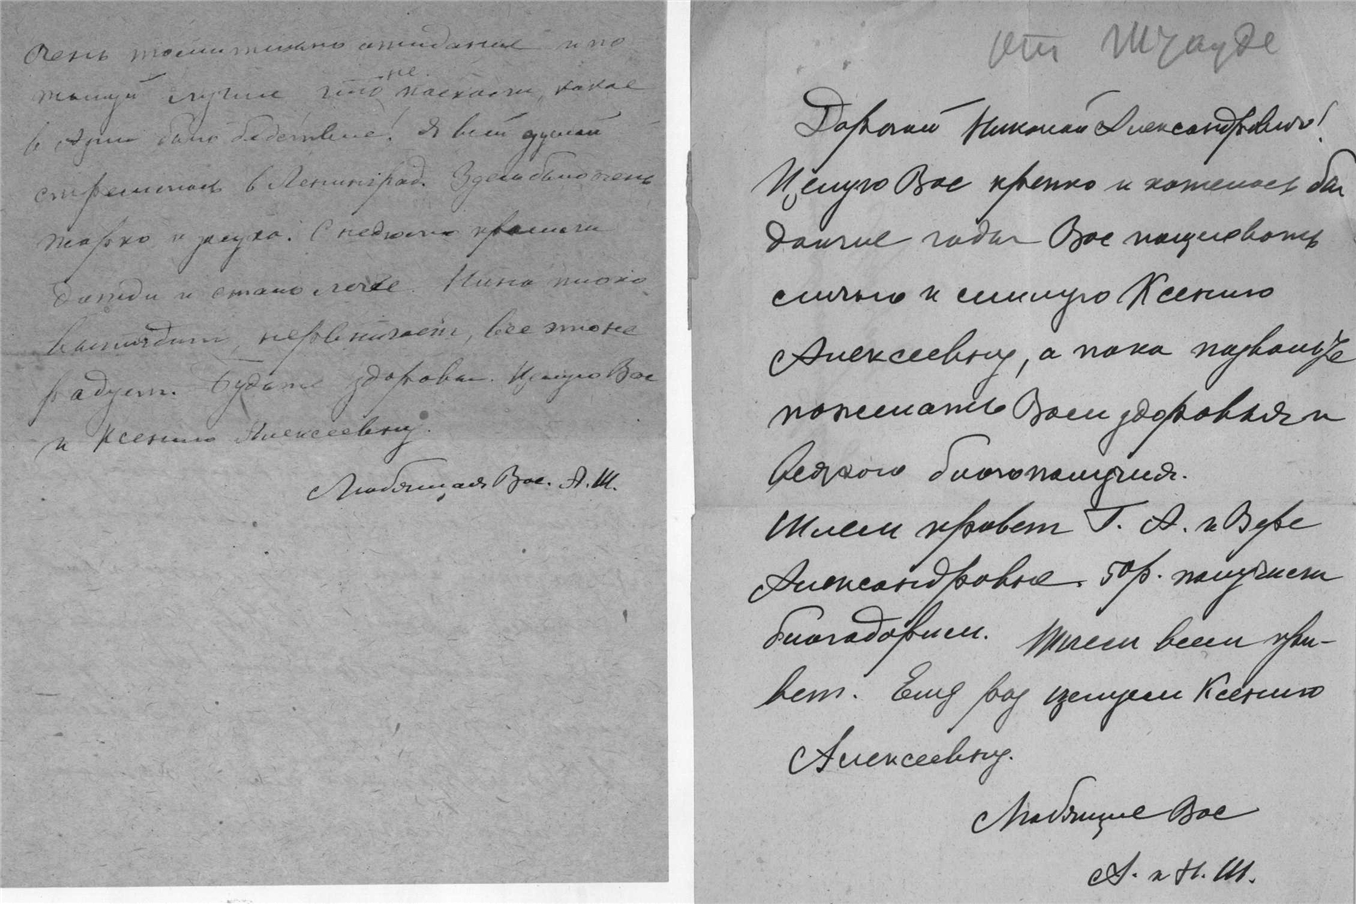 очень томительно ожидание и по
жалуй лучше что не поехали, какое
в Крыму было бедствие! Я всей душой
стремилась в Ленинград. Здесь было очень
жарко и засуха. С неделю прошли
дожди и стало легче. Нина плохо
выглядит, нервничает, все это не
радует. Будьте здоровы. Целую Вас
и Ксению Алексеевну.
Любящая Вас. А. Ш.
от Шуауде
Дорогой Николай Александрович!
Целую Вас крепко и хотелось бы
долгие годы Вас поцеловать
лично и милую Ксению
Алексеевну, а пока позвольте
пожелать Вам здоровья и
всякого благополучия.
Шлем привет Г. А. и Вере
Александровне. 50р. получили
благодарим. Шлем всем при-
вет. Ещё раз целуем Ксению
Алексеевну.
Любящие Вас
А. и Н. Ш.